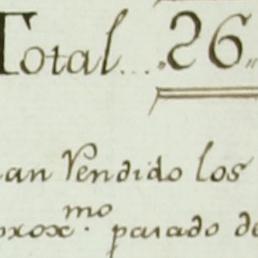 Total... 26
an Vendido los
oxox.mo pasado de